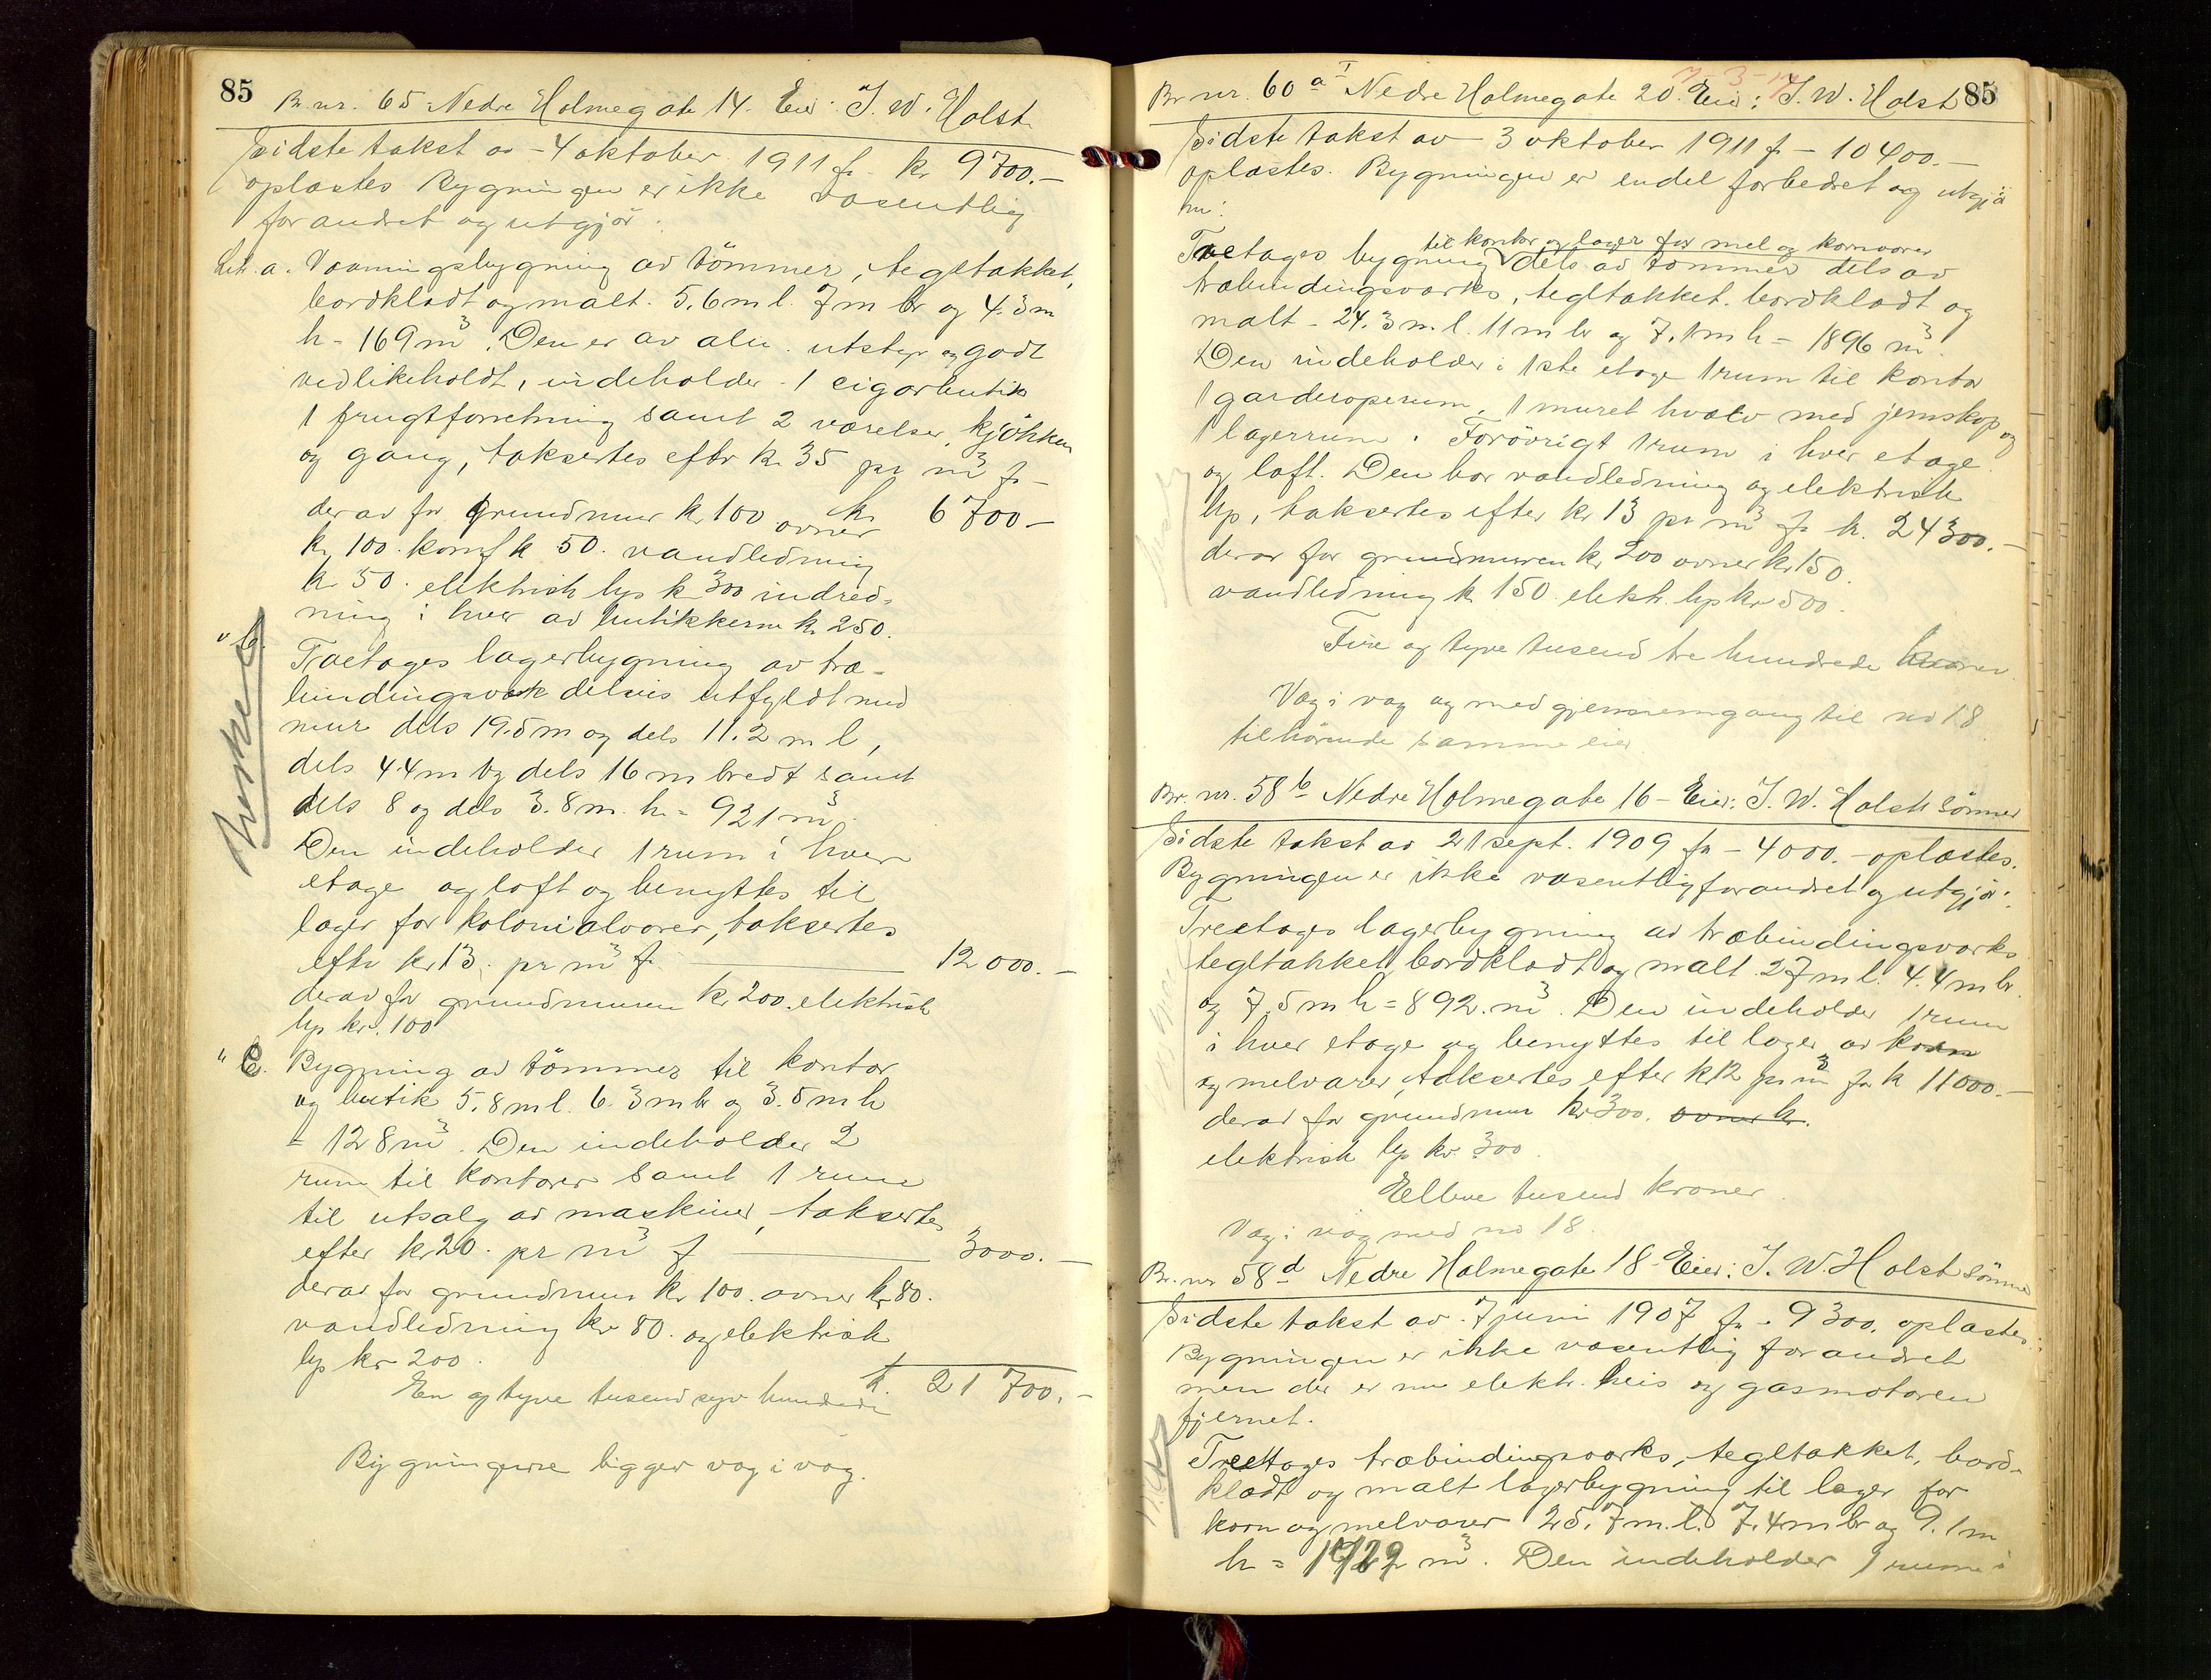 85
Br. nr. 65 Nedre Holmegate 14. Eier: J. W. Holst
Sidste takst av 4 oktober 1911 fr. kr 9700.-
oplæstes Bygningen er ikke væsentlig
forandret og utgjör:
Lit. a. Vaaningsbygning av tömmer, tegltækket,
bordklædt og malt. 5.6 m l. 7 m br og 4.3 m
h = 169 m³. Den er av alm. utstyr og godt
vedlikeholdt, indeholder 1 cigarbutik
1 frugtforretning samt 2 værelser, kjökken
og gang, taksertes efter kr 35 pr m³ fr
kr 6700 -
derav for grundmur kr 100 ovner
kr 100. komf k 50. vandledning
kr 50. elektrisk lys kr 300 indred-
ning i hver av butikkerne kr 250.
" b. Toetages lagerbygning av træ-
bindingsverk delvis utfyldt med
mur dels 19.5 m og dels 11.2 m l,
dels 4.4 m og dels 16 m bredt samt
dels 8 og dels 3.8 m. h. = 921 m³.
Den indeholder 1 rum i hver
etage og loft og benyttes til
lager for kolonialvarer, taksertes
efter kr 13. pr m³ fr. 12000.-
derav for grundmuren kr 200. elektrisk
lys kr. 100
" C. Bygning av tömmer til kontor
og butik 5.8 m l. 6.3 m br og 3.5 m h
= 128 m³. Den indeholder 2
rum til kontorer samt 1 rum
til utsalg av maskiner, taksertes
efter kr 20. pr m³ f 3000.-
derav for grundmur kr 100. ovner kr 80.
vandledning kr 80. og elektrisk
lys kr 200.
k. 21700.-
En og tyve tusend syv hundrede
Bygningerne ligger væg i væg.
85
Br nr. 60 a I Nedre Holmegate 20. Eier: J. W. Holst
Sidste takst av 3 oktober 1911 fr - 10400.-
oplæstes. Bygningen er endel forbedret og utgjör
nu:
til kontor og lager for mel og kornvarer
Toetages bygning dels av tömmer dels av
træbindingsverks, tegltækket. bordklædt og
malt - 24.3 m. l. 11 m br og 7.1 m h = 1896 m³.
Den indeholder i 1ste etage 1 rum til kontor
1 garderoperum, 1 muret hvælv med jernskap og
1 lagerrum. Forövrigt 1 rum i hver etage
og loft. Den har vandledning og elektrisk
lys, taksertes efter kr 13 pr m³ fr k. 24300.-
derav for grundmuren kr 200 ovner kr 150.
vandledning k 150. elektr. lys kr 500.
Fire og tyve tusend tre hundrede kroner.
Væg i væg og med gjennemgang til no 18
tilhörende samme eier.
Br. nr. 58 b Nedre Holmegate 16 - Eier: J. W. Holst Sönner
Sidste takst av 21 sept. 1909 fr - 4000. - oplæstes.
Bygningen er ikke væsentlig forandret og utgjör:
Treetages lagerbygning av træbindingsverks
tegltækket, bordklædt og malt 27 m l. 4.4 m br.
og 7.5 m h = 892. m³. Den indeholder 1 rum
i hver etage og benyttes til lager av korn
og melvarer, taksertes efter kr 12 pr m³ fr k 11000.-
derav for grundmur kr 300. ovner kr.
elektrisk lys kr. 300.
Elleve tusend kroner.
Væg i væg med no 18.
Br. nr 58 d Nedre Holmegate 18 - Eier: J. W. Holst Sönner
Sidste takst av 7 juni 1907 fr - 9300. oplæstes.
Bygningen er ikke væsentlig forandret
men der er nu elektr. heis og gasmotoren
fjernet.
Treetages træbindingsverks, tegltækket, bord-
klædt og malt lagerbygning til lager for
korn og melvarer 25.7 m. l. 7.4 m br og 9.1 m
h = m³. Den indeholder 1 rum i